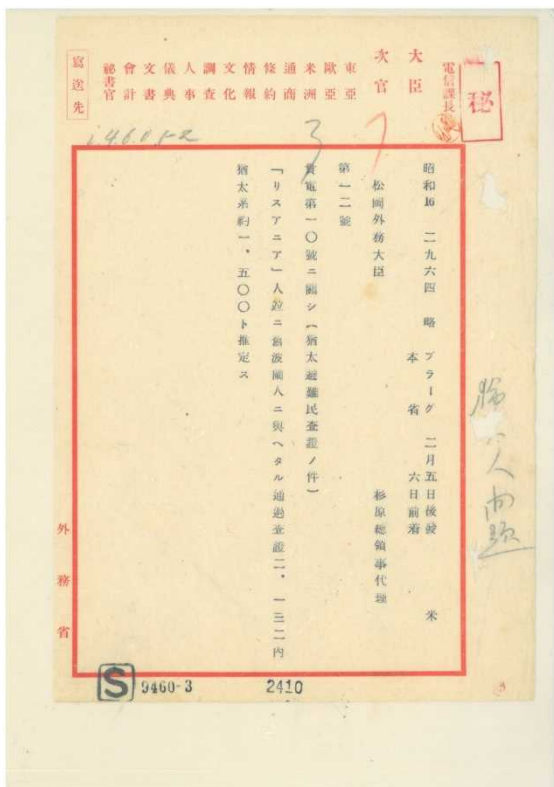 秘
電信課長
大臣
次官
東亞
歐亞
米洲
通商
條約
情報
文化
調査
人事
儀典
文書
會計
秘書官
寫送先
昭和16 二九六四 略 プラーグ 二月五日後發 米
本省 六日前着
松岡外務大臣 杉原總領事代理
第一二號
貴電第一〇號ニ關シ(猶太避難民査證ノ件)
「リスアニア」人竝ニ舊波國人ニ與ヘタル通過査證二、一三二內
猶太系約一、五〇〇ト推定ス
外務省
S 9460-3 2410